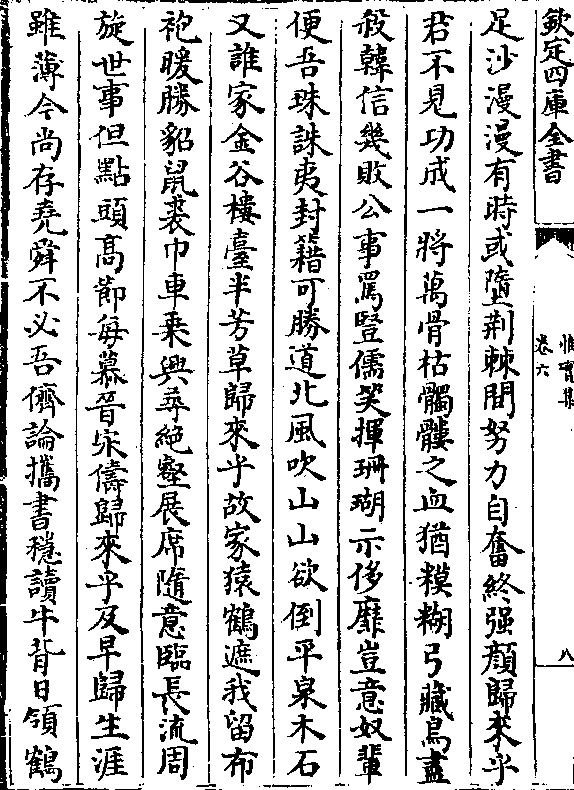 欽定四庫全書
卷六
八
足沙漫漫有時或墮荆棘間努力自奮終强顔歸來乎
君不見功成一將萬骨枯髑髏之血猶糢糊弓藏鳥盡
殺韓信幾敗公事罵豎儒笑揮珊瑚示侈靡豈意奴輩
便吾珠誅夷封籍可勝道北風吹山山欲倒平泉木石
又誰家金谷樓臺半芳草歸來乎故家猿鶴遮我留布
袍暖勝貂鼠裘巾車乗興尋絶壑展席隨意臨長流周
旋世事但點頭高節每慕晉宋儔歸來乎及早歸生涯
雖薄今尚存堯舜不必吾儕論攜書穩讀牛背日領鶴